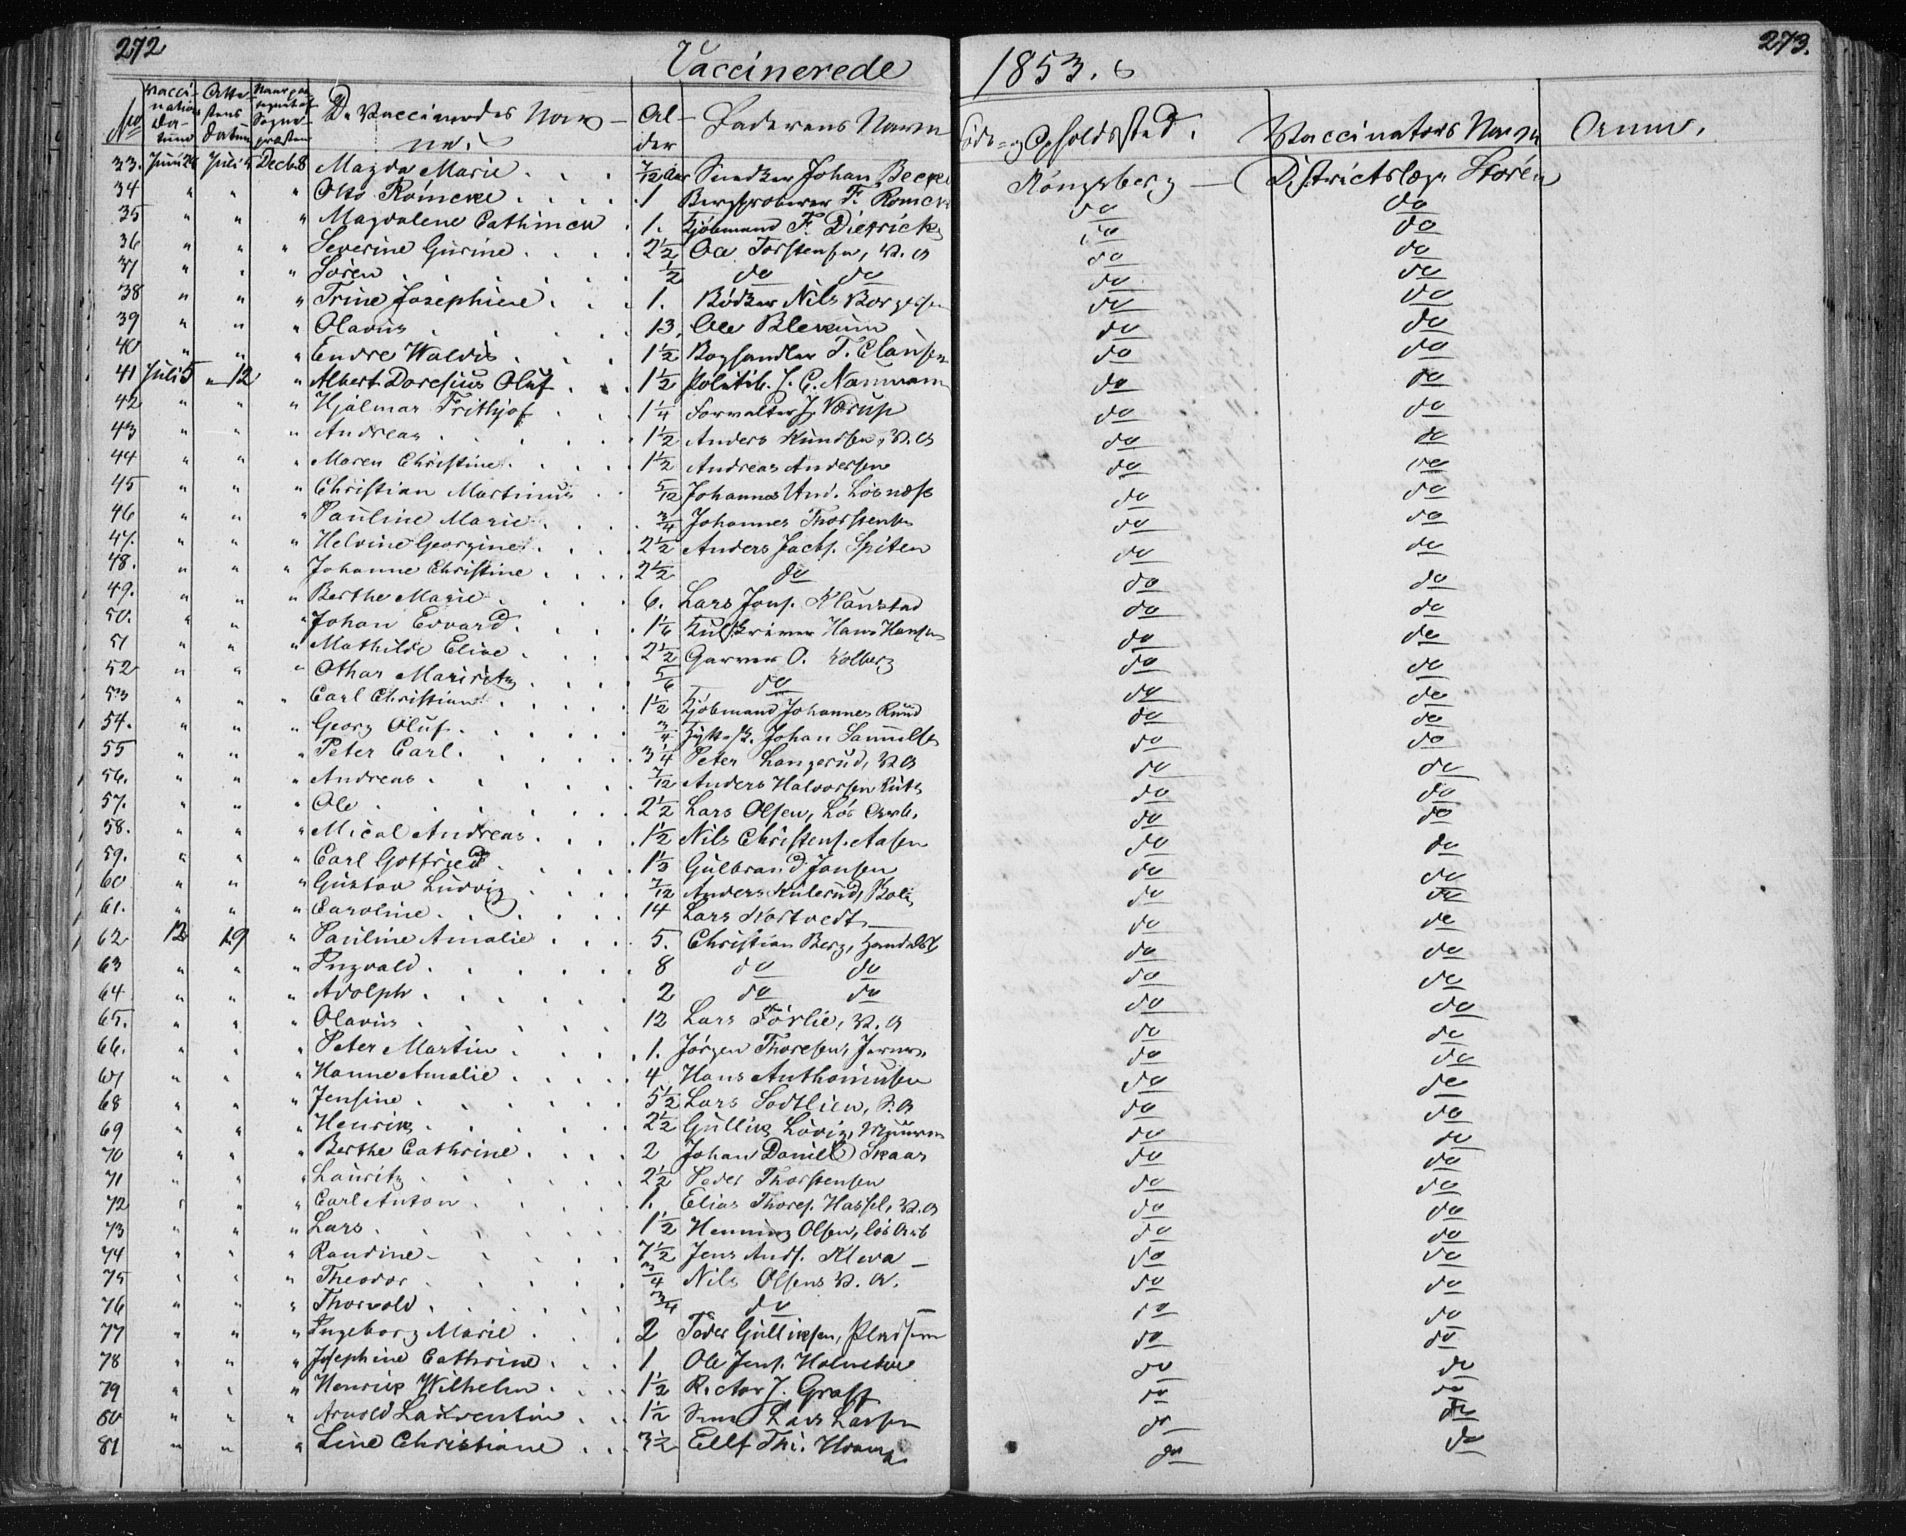 272 Vaccinerede 1853. 273.
No Vaccinations Datum Attestens Datum De Vaccineredes Navne. Alder Faderens Navn Føde- og Opholdssted. Vaccinators Navn Anm.
33. Juni 28 Juli 5 Decbr 8 Magda Marie 7/12 Aar Snedker Johan Becke Kongsberg Districtslæge Storén
34 " " " Otto Römcke 1 Bergprobeerer F. Römcke do do
35 " " " Magdalene Cathinca 1. Kjöbmand F. Dietrichs do do
36 " " " Severine Gurine 2 1/2 Ole Torstensen, B. A do do
37 " " " Sören 1/2 do do do do
38 " " " Trine Josephine 1. Bödker Nils Borgersen do do
39 " " " Olavus 13. Ole Blekum do do
40 " " " Endre Waldis 1 1/2 Boghandler T. Clausen do do
41 Juli 5 " 12 " Albert Doresius Oluf 1 1/2 Politib. J. C. Namann do do
42 " " " Hjalmar Frithjof 1 1/4 Forvalter J. Værup do do
43 " " " Andreas 1 1/2 Anders Knudsen, B. A do do
44 " " " Maren Christine 1 1/2 Andreas Andersen do do
45 " " " Christian Martinus 5/12 Johannes And. Løsnæss do do
46 " " " Pauline Marie 3/4 Johannes Thorstens do do
47. " " " Helvine Georgine 2 1/2 Anders Jacbs. Spiten do do
48. " " " Johanne Christine 2 1/2 do do do
49. " " " Berthe Marie 6. Lars Jons. Klanstad do do
50. " " " Johan Edvard 1 1/6 Hans Hansen do do
51 " " " Mathilde Elise 2 1/2 Garver O. Kolberg do do
52 " " " Othar Mariritz 5/6 do do do
53 " " " Carl Christian 1 1/2 Kjöbmand Johannes Ruud do do
54. " " " Georg Oluf 3/4 Johan Samuels do do
55 " " " Peter Carl 3 1/4 Peter Langerud, B A do do
56. " " " Andreas 7/12 Anders Halvorsen do do
57. " " " Ole 2 1/2 Lars Olsen, Lös Arb. do do
58. " " " Micol Andreas 1 1/2 Nils Christens. Aasen do do
59. " " " Carl Gottfried 1 1/3 Gulbrand Jonsen do do
60 " " " Gustav Ludvig 7/12 Anders do do
61. " " " Caroline 14 Lars Kortvedt do do
62 12 19 " Pauline Amalie 5. Christian Berg, do do
63 " " " Ingvald 8 do do do do
64. " " " Adolph 2 do do do do
65. " " " Olavus 12 Lars Förlie, B. A do do
66. " " " Peter Martin 1. Jörgen Thoresen, do do
67 " " " Hanne Amalie 4 Hans Anthonisen do do
68 " " " Jensine 5 1/2 Lars Sodtlien, S. A do do
69 " " " Henrik 2 1/2 Gullik Lövig, Muurm do do
70 " " " Berthe Cathrine 2 Johan Daniel Skaar do do
71 " " " Lauritz 2 1/2 Peder Thorstensen do do
72 " " " Carl Anton 1. Elias Thores. Hassel, B. A do do
73 " " " Lars 1 1/2 Henning Olsen, lös Arb do do
74 " " " Randine 7 1/2 Jens Ands. Kleva do do
75 " " " Theodor 3/4 Nils Olsens B. A. do do
76 " " " Thorvald 3/4 do do do
77 " " " Ingeborg Marie 2 Peder Gulliksen, do do
78 " " " Josephine Cathrine 1 Ole Jens. do do
79 " " " Henrik Wilhelm 1 1/2 Rector J. Graff do do
80 " " " Arnold Laurentin 1 1/2 Lars Larsen do do
81 " " " Line Christiane 3 1/2 Ellf do do